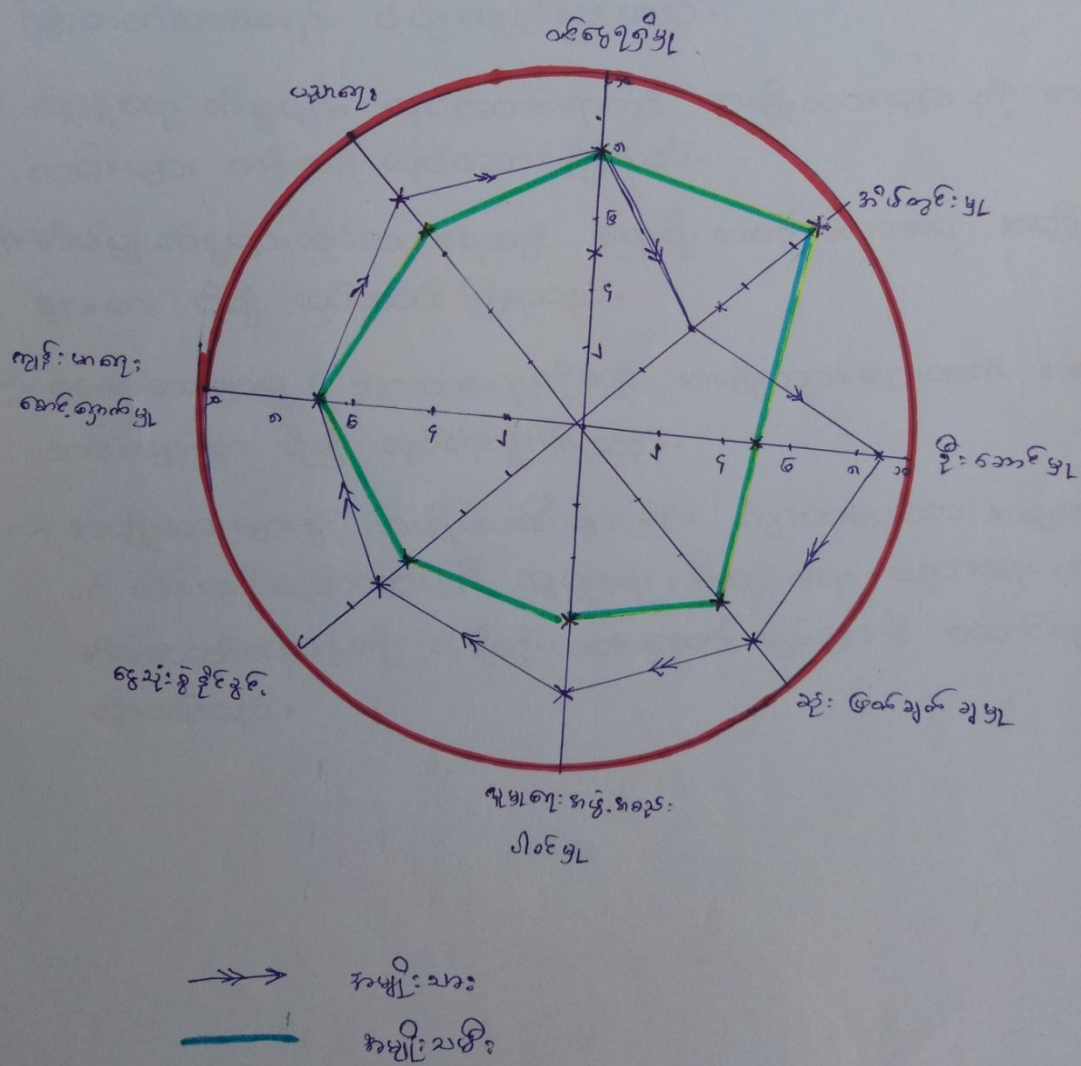 ဝင်ငွေရရှိမှု
ပညာရေး
အိမ်တွင်းမှု
ကျန်းမာရေး
စောင့်ရှောက်မှု
ဦးဆောင်မှု
ငွေသုံးစွဲနိုင်ခွင့်
ဆုံးဖြတ်ချက်ချမှု
လူမှုရေးအဖွဲ့အစည်း
ပါဝင်မှု
၁၀
၈
၆
၄
၂
၁၀
၈
၆
၄
၂
၂
၄
၆
၈
၁၀
အမျိုးသား
အမျိုးသမီး